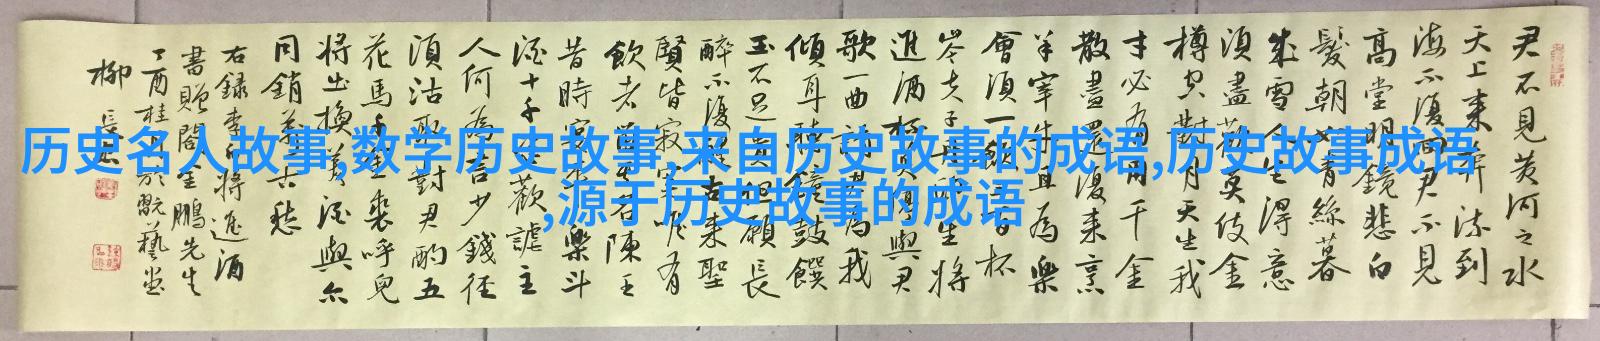 君不見黃河之水
天上来奔流到
海不復回君不見
高堂明鏡悲白
髮朝如青絲暮
成雪人生得意
須盡歡莫使金
樽空對月天生我
才必有用千金
散盡還復来烹
羊宰牛且為樂
會須一飲三百杯
岑夫子丹丘生將
進酒杯莫停與君
歌一曲請君為我
傾耳聽鐘鼓饌
玉不足貴但願長
醉不復醒古来聖
賢皆寂寞唯有
飲者留其名陳王
昔時宴平樂斗
酒十千恣歡謔主
人何為言少錢径
須沽取對君酌五
花馬千金裘呼兒
將出換美酒與尔
同銷萬古愁
右録李白將進酒
書贈閣金鵬先生
丁酉桂月於翫藝堂
柳長
历史名人故事,数学历史故事,来自历史故事的成语,历史故事成语
,源于历史故事的成语